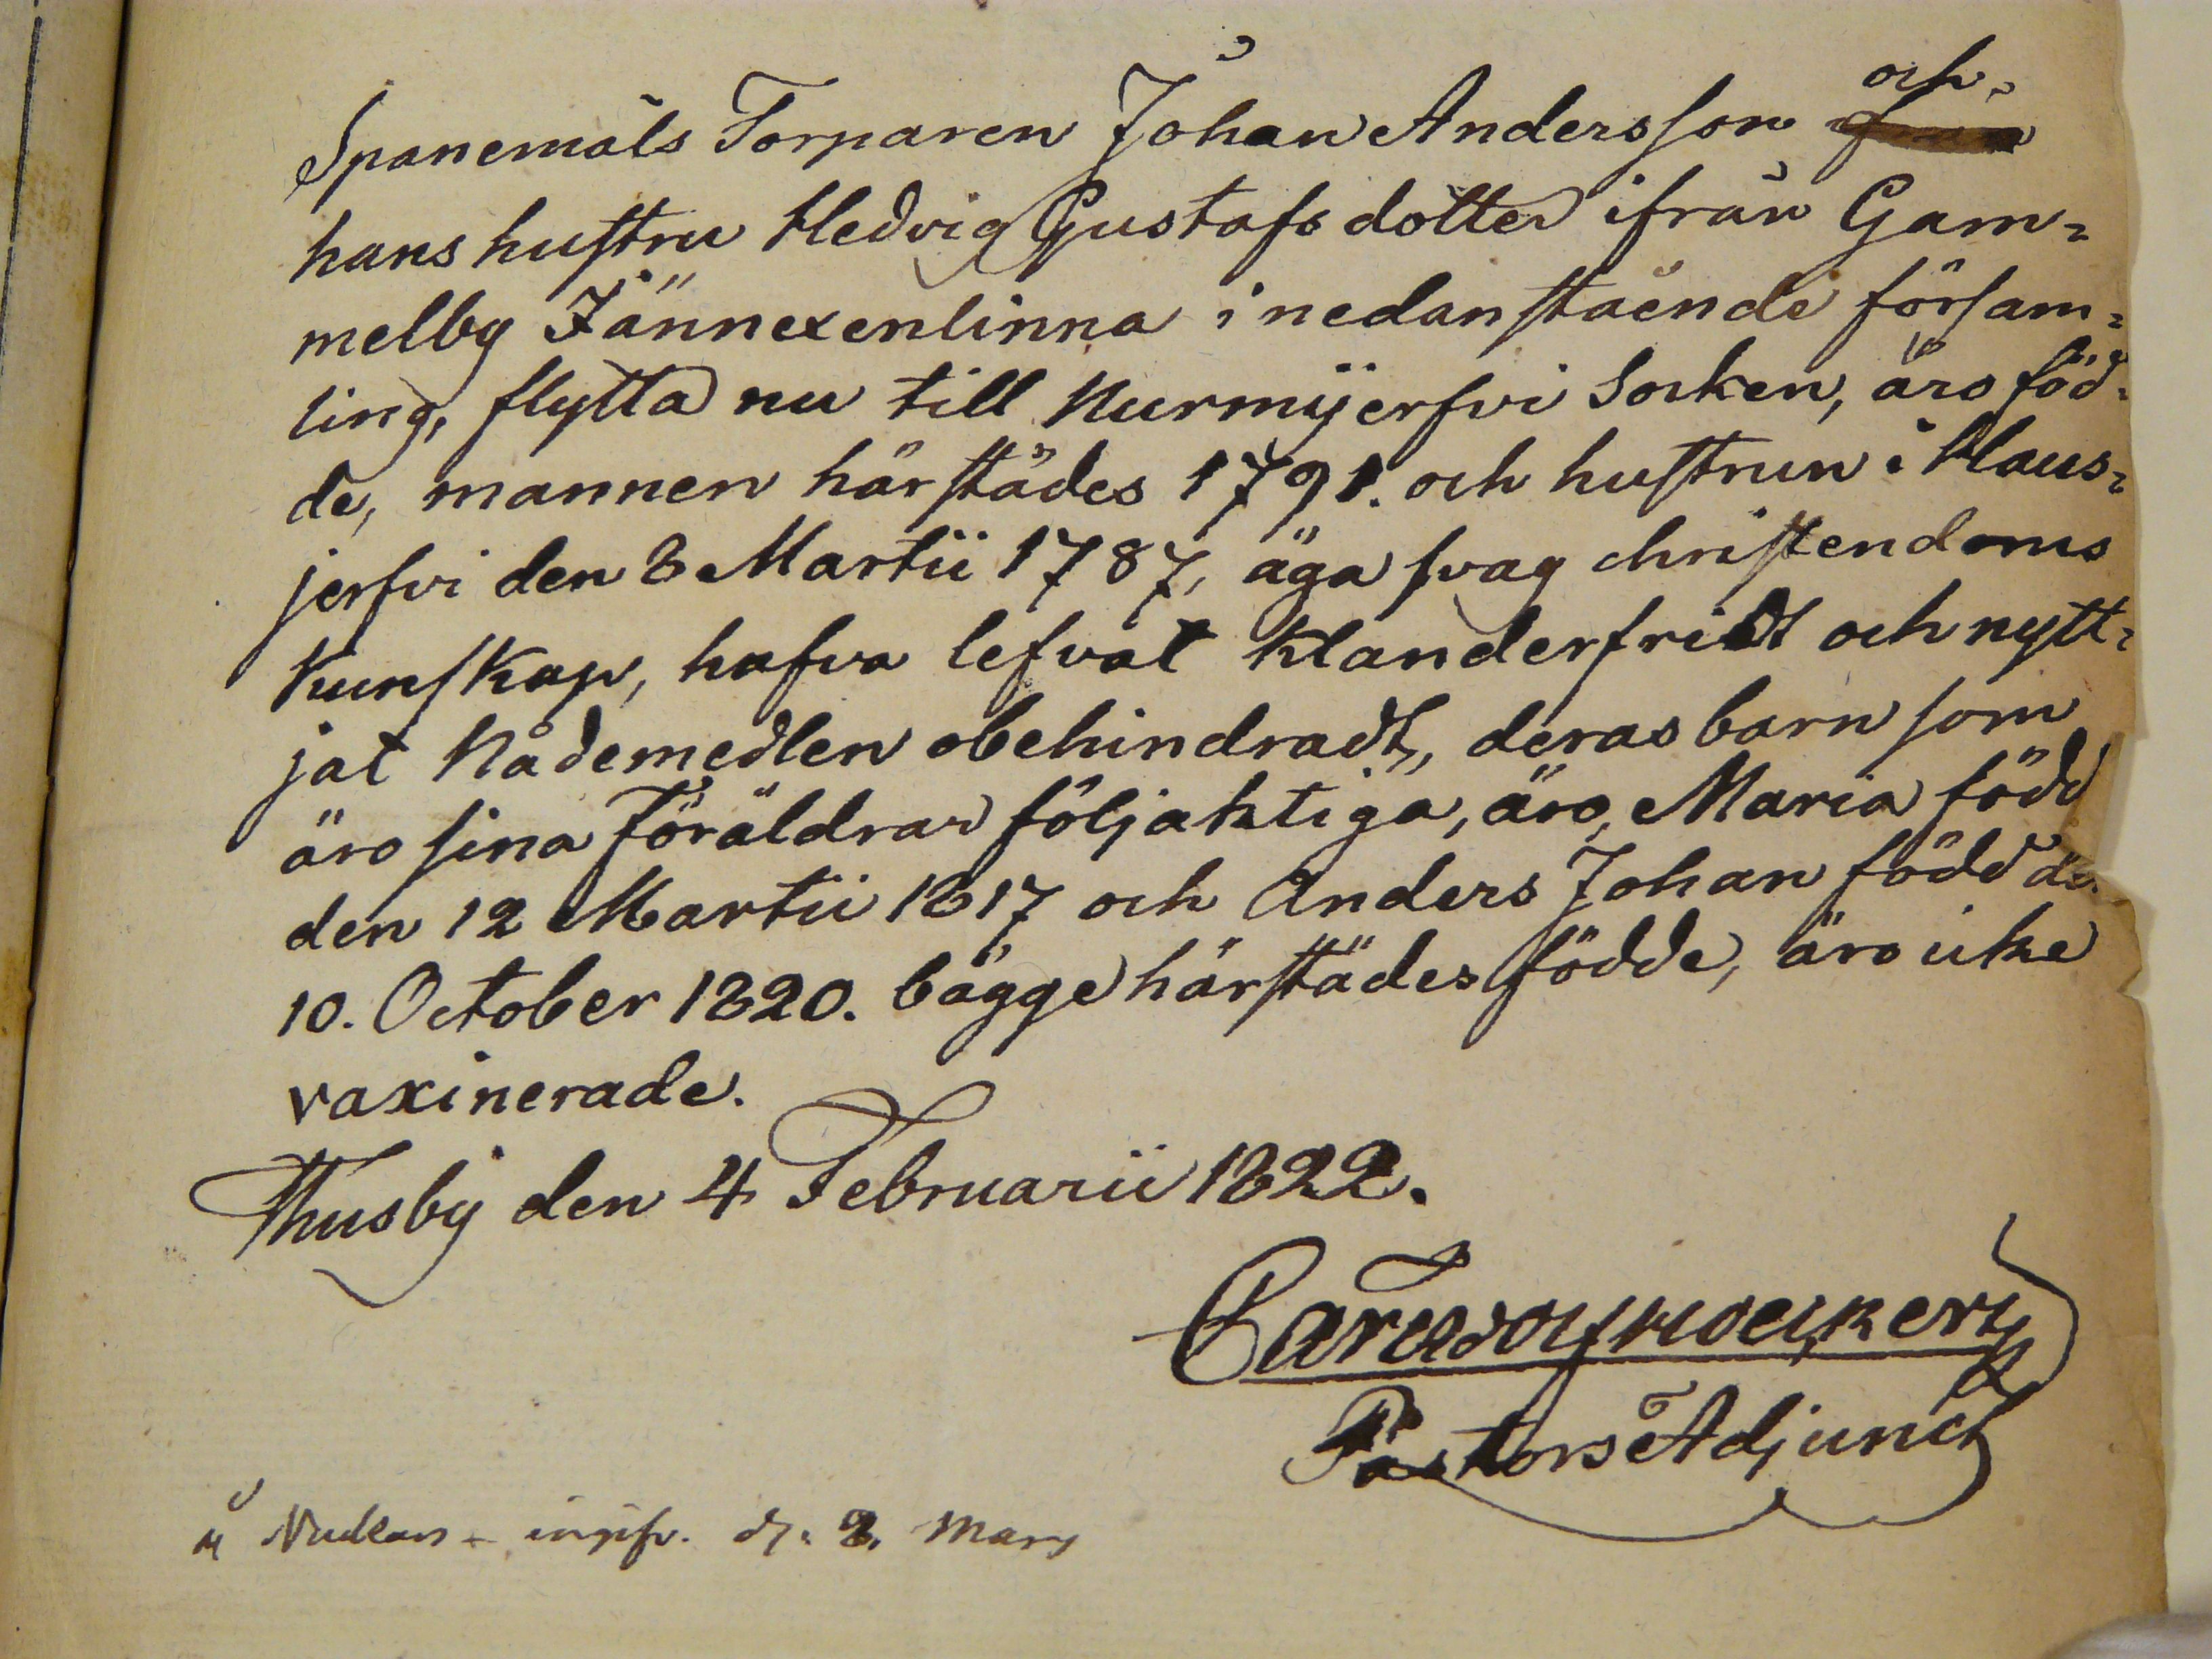 och
Spanemåls Torparen Johan Andersson
hans hustru Hedvig Gustafsdotter ifrån Gam=
melby Jännexenlinna i nedanstående försam=
ling, flytta nu till Nurmijerfvi Socken, äro föd=
de, mannen härstädes 1791. och hustrun i Haus=
jerfvi den 8 Martii 1787, äga svag christendoms
Kunskap, hafva lefvat klanderfridt och nytt=
jat Nådemedlen obehindradt, deras barn som
äro sina Föräldrar följaktiga, äro, Maria född
den 12 Martii 1817 och Anders Johan född
10. October 1820. bägge härstädes födde, äro icke
vaxinerade.
Thusby den 4 Februarii 1822.
Pastors Adjunct